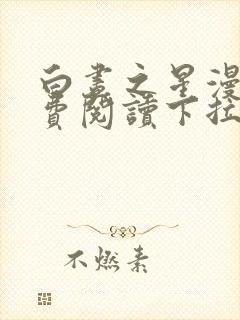 白晝之星漫
費閱讀下拉
不燃素